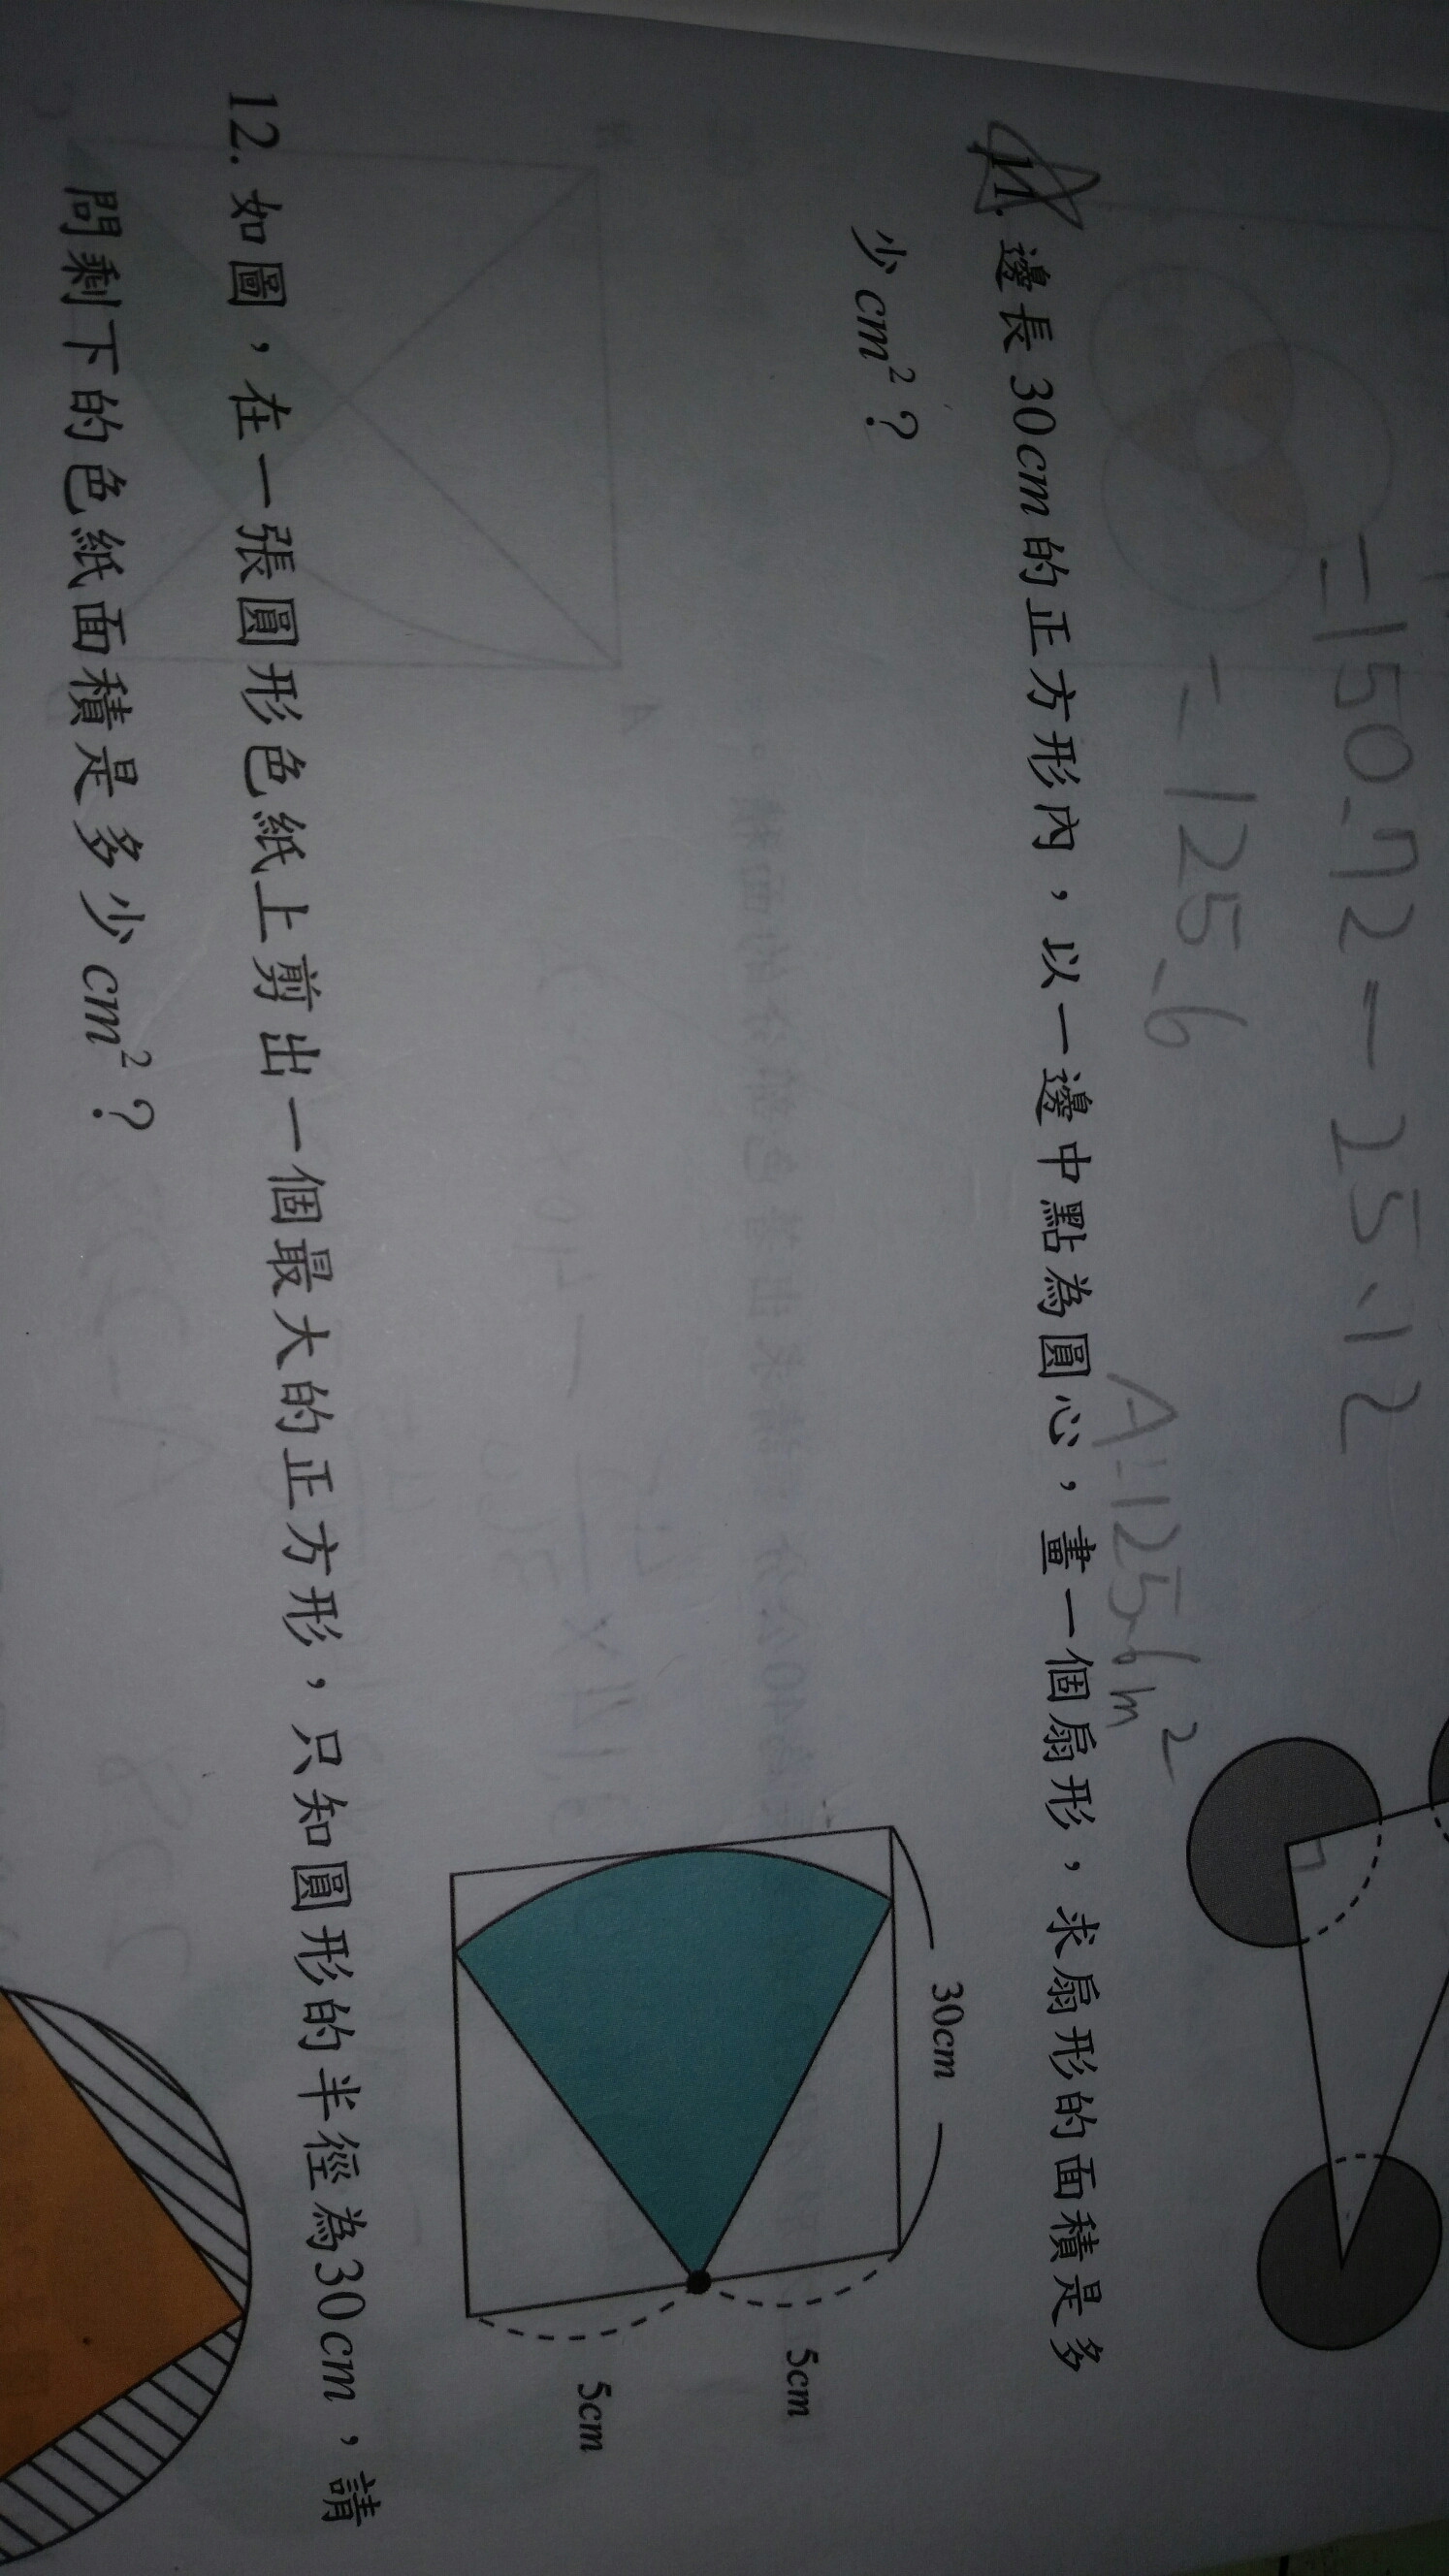 =150.72-25.12
=125.6
A:125.6m²
11. 邊長30cm的正方形內，以一邊中點為圓心，畫一個扇形，求扇形的面積是多
少cm²？
30cm
5cm
5cm
12. 如圖，在一張圓形色紙上剪出一個最大的正方形，只知圓形的半徑為30cm，請
問剩下的色紙面積是多少cm²？